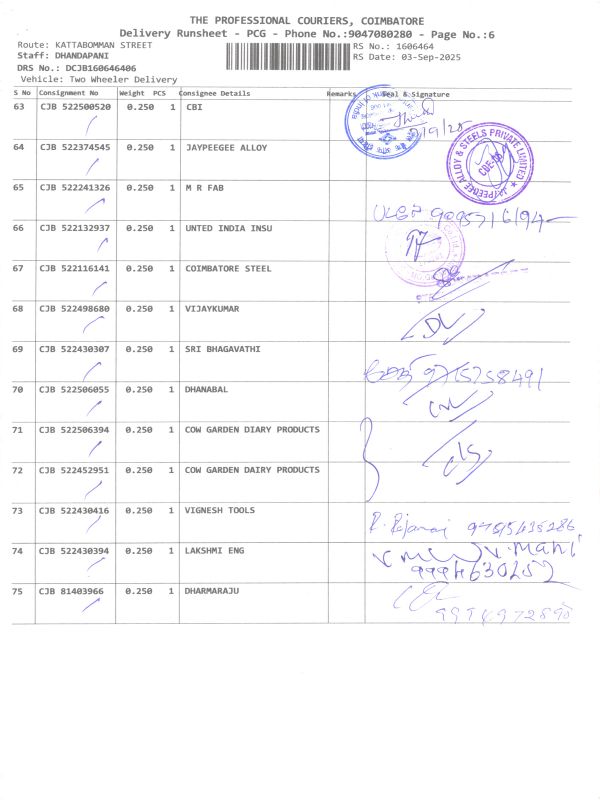 THE PROFESSIONAL COURIERS, COIMBATORE
Delivery Runsheet - PCG - Phone No.:9047080280 - Page No.:6
Route: KATTABOMMAN STREET RS No.: 1606464
Staff: DHANDAPANI RS Date: 03-Sep-2025
DRS No.: DCJB160646406
Vehicle: Two Wheeler Delivery
S No Consignment No Weight PCS Consignee Details Remarks Seal & Signature
63 CJB 522500520 0.250 1 CBI
64 CJB 522374545 0.250 1 JAYPEEGEE ALLOY
JAIPEEGEE ALLOY & STEELS PRIVATE LIMITED
65 CJB 522241326 0.250 1 M R FAB
66 CJB 522132937 0.250 1 UNTED INDIA INSU
67 CJB 522116141 0.250 1 COIMBATORE STEEL
68 CJB 522498680 0.250 1 VIJAYKUMAR
69 CJB 522430307 0.250 1 SRI BHAGAVATHI
9715758491
70 CJB 522506055 0.250 1 DHANABAL
71 CJB 522506394 0.250 1 COW GARDEN DIARY PRODUCTS
72 CJB 522452951 0.250 1 COW GARDEN DAIRY PRODUCTS
73 CJB 522430416 0.250 1 VIGNESH TOOLS
74 CJB 522430394 0.250 1 LAKSHMI ENG V. Mani
75 CJB 81403966 0.250 1 DHARMARAJU